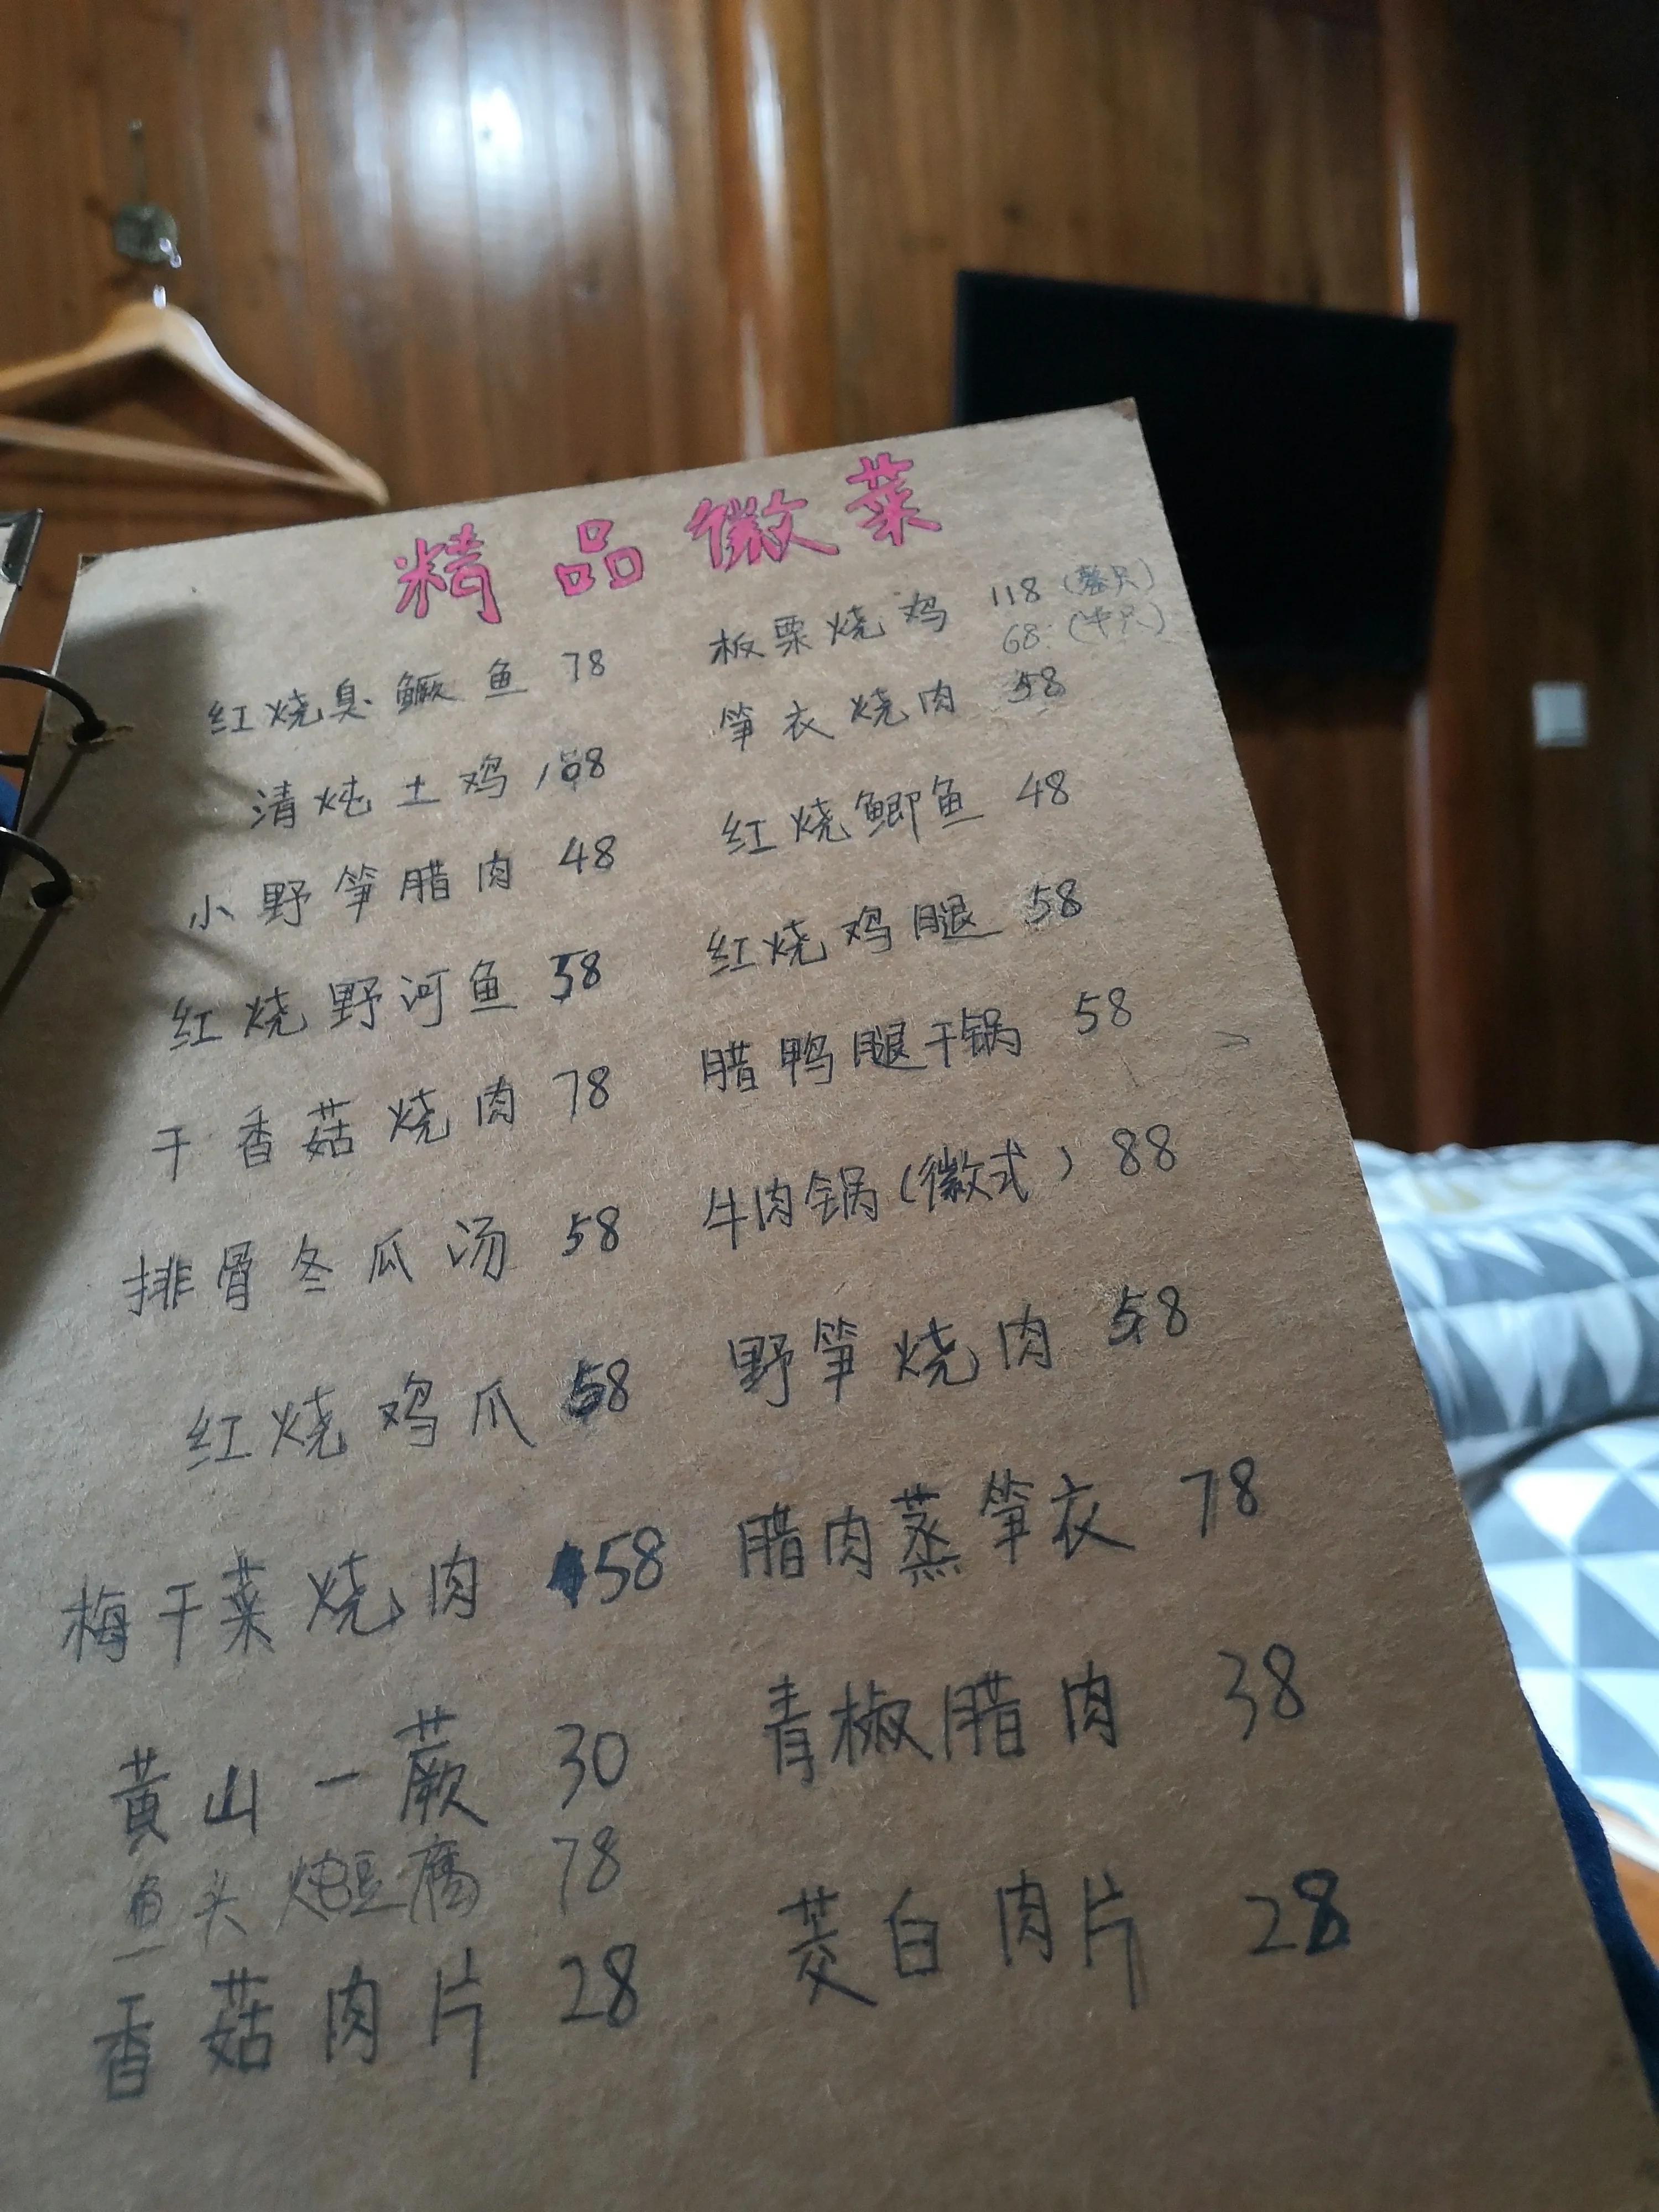 精品徽菜
红烧臭鳜鱼 78
清炖土鸡 168
小野笋腊肉 48
红烧野河鱼 58
干香菇烧肉 78
排骨冬瓜汤 58
红烧鸡爪 58
梅干菜烧肉 58
黄山一蕨 30
鱼头炖豆腐 78
香菇肉片 28
板栗烧鸡 118 (整只)
68 (半只)
笋衣烧肉 58
红烧鲫鱼 48
红烧鸡腿 58
腊鸭腿干锅 58
牛肉锅(徽式) 88
野笋烧肉 58
腊肉蒸笋衣 78
青椒腊肉 38
茭白肉片 28